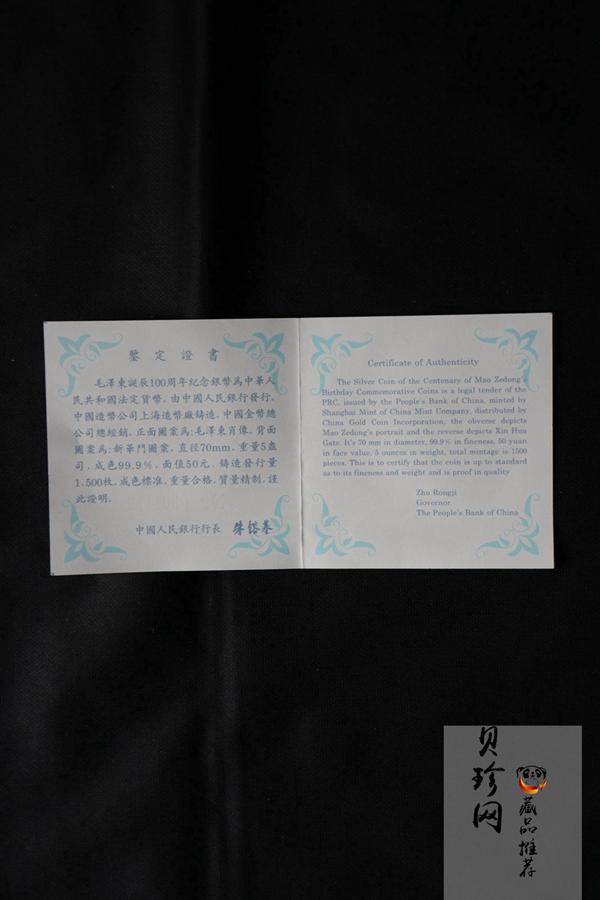 鑒定證書
毛澤東誕辰100周年紀念銀幣為中華人
民共和國法定貨幣。由中國人民銀行發行。
中國造幣公司上海造幣廠鑄造。中國金幣總
公司總經銷。正面圖案為:毛澤東肖像。背面
圖案為:新華門圖案。直徑70mm。重量5盎
司。成色99.9%。面值50元。鑄造發行量
1.500枚。成色標准。重量合格。質量精制。謹
此證明。
中國人民銀行行長 朱鎔基
Certificate of Authenticity
The Silver Coin of the Centenary of Mao Zedong's
Birthday Commemorative Coins is a legal tender of the
PRC, issued by the People's Bank of China, minted by
Shanghai Mint of China Mint Company, distributed by
China Gold Coin Incorporation, the obverse depicts
Mao Zedong's portrait and the reverse depicts Xin Hua
Gate. It's 70 mm in diameter, 99.9% in fineness, 50 yuan
in face value, 5 ounces in weight, total mintage is 1500
pieces. This is to certify that the coin is up to standard
as to its fineness and weight and is proof in quality
Zhu Rongji
Governor
The People's Bank of China
贝珍网
藏品推荐